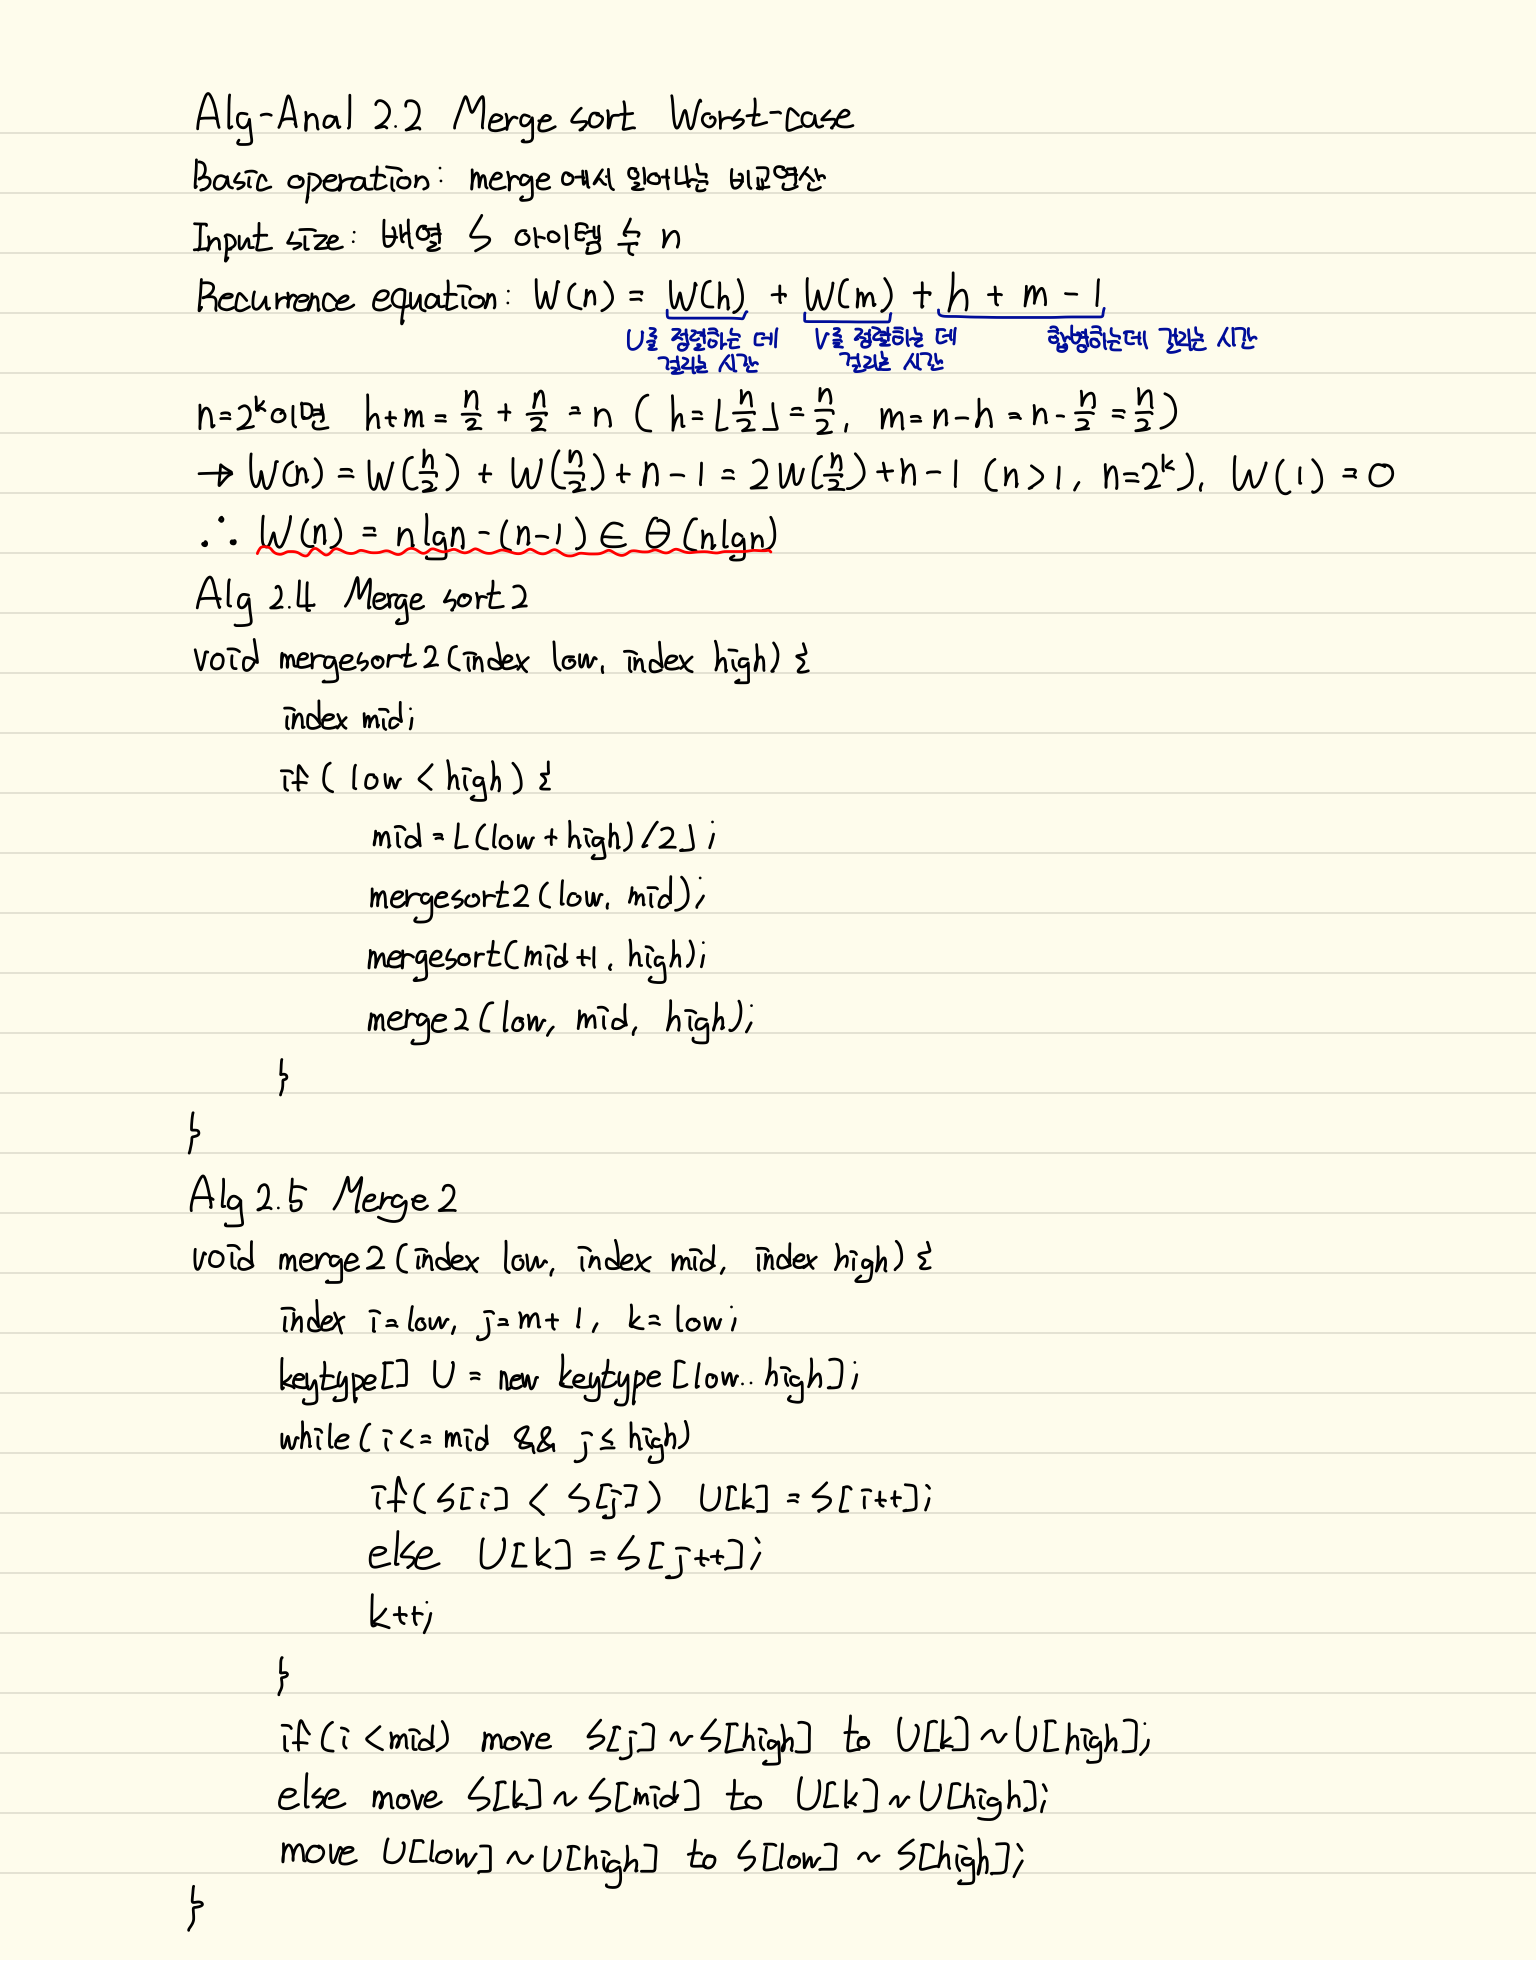 Alg-Anal 2.2 Merge sort Worst-case
Basic operation: merge에서 일어나는 비교연산
Input size: 배열 S 아이템 수 n
Recurrence equation: W(n) = W(h) + W(m) + h + m - 1
U를 정렬하는 데 걸리는 시간
V를 정렬하는 데 걸리는 시간
합병하는데 걸리는 시간
n=2^k이면 h+m = n/2 + n/2 = n ( h=⌊n/2⌋=n/2, m=n-h=n-n/2=n/2)
→ W(n) = W(n/2) + W(n/2) + n - 1 = 2W(n/2)+n-1 (n>1, n=2^k), W(1) = 0
∴ W(n) = nlgn-(n-1) ∈ Θ(nlgn)
Alg 2.4 Merge sort 2
void mergesort2(index low, index high) {
index mid;
if ( low < high ) {
mid = ⌊(low + high)/2⌋;
mergesort2(low, mid);
mergesort(mid+1, high);
merge2(low, mid, high);
}
}
Alg 2.5 Merge 2
void merge2(index low, index mid, index high) {
index i=low, j=m+1, k=low;
keytype[] U = new keytype[low..high];
while(i<=mid && j≤high)
if(S[i] < S[j]) U[k] = S[i++];
else U[k] = S[j++];
k++;
}
if(i <mid) move S[j]~S[high] to U[k]~U[high];
else move S[k]~S[mid] to U[k]~U[high];
move U[low]~U[high] to S[low] ~ S[high];
}